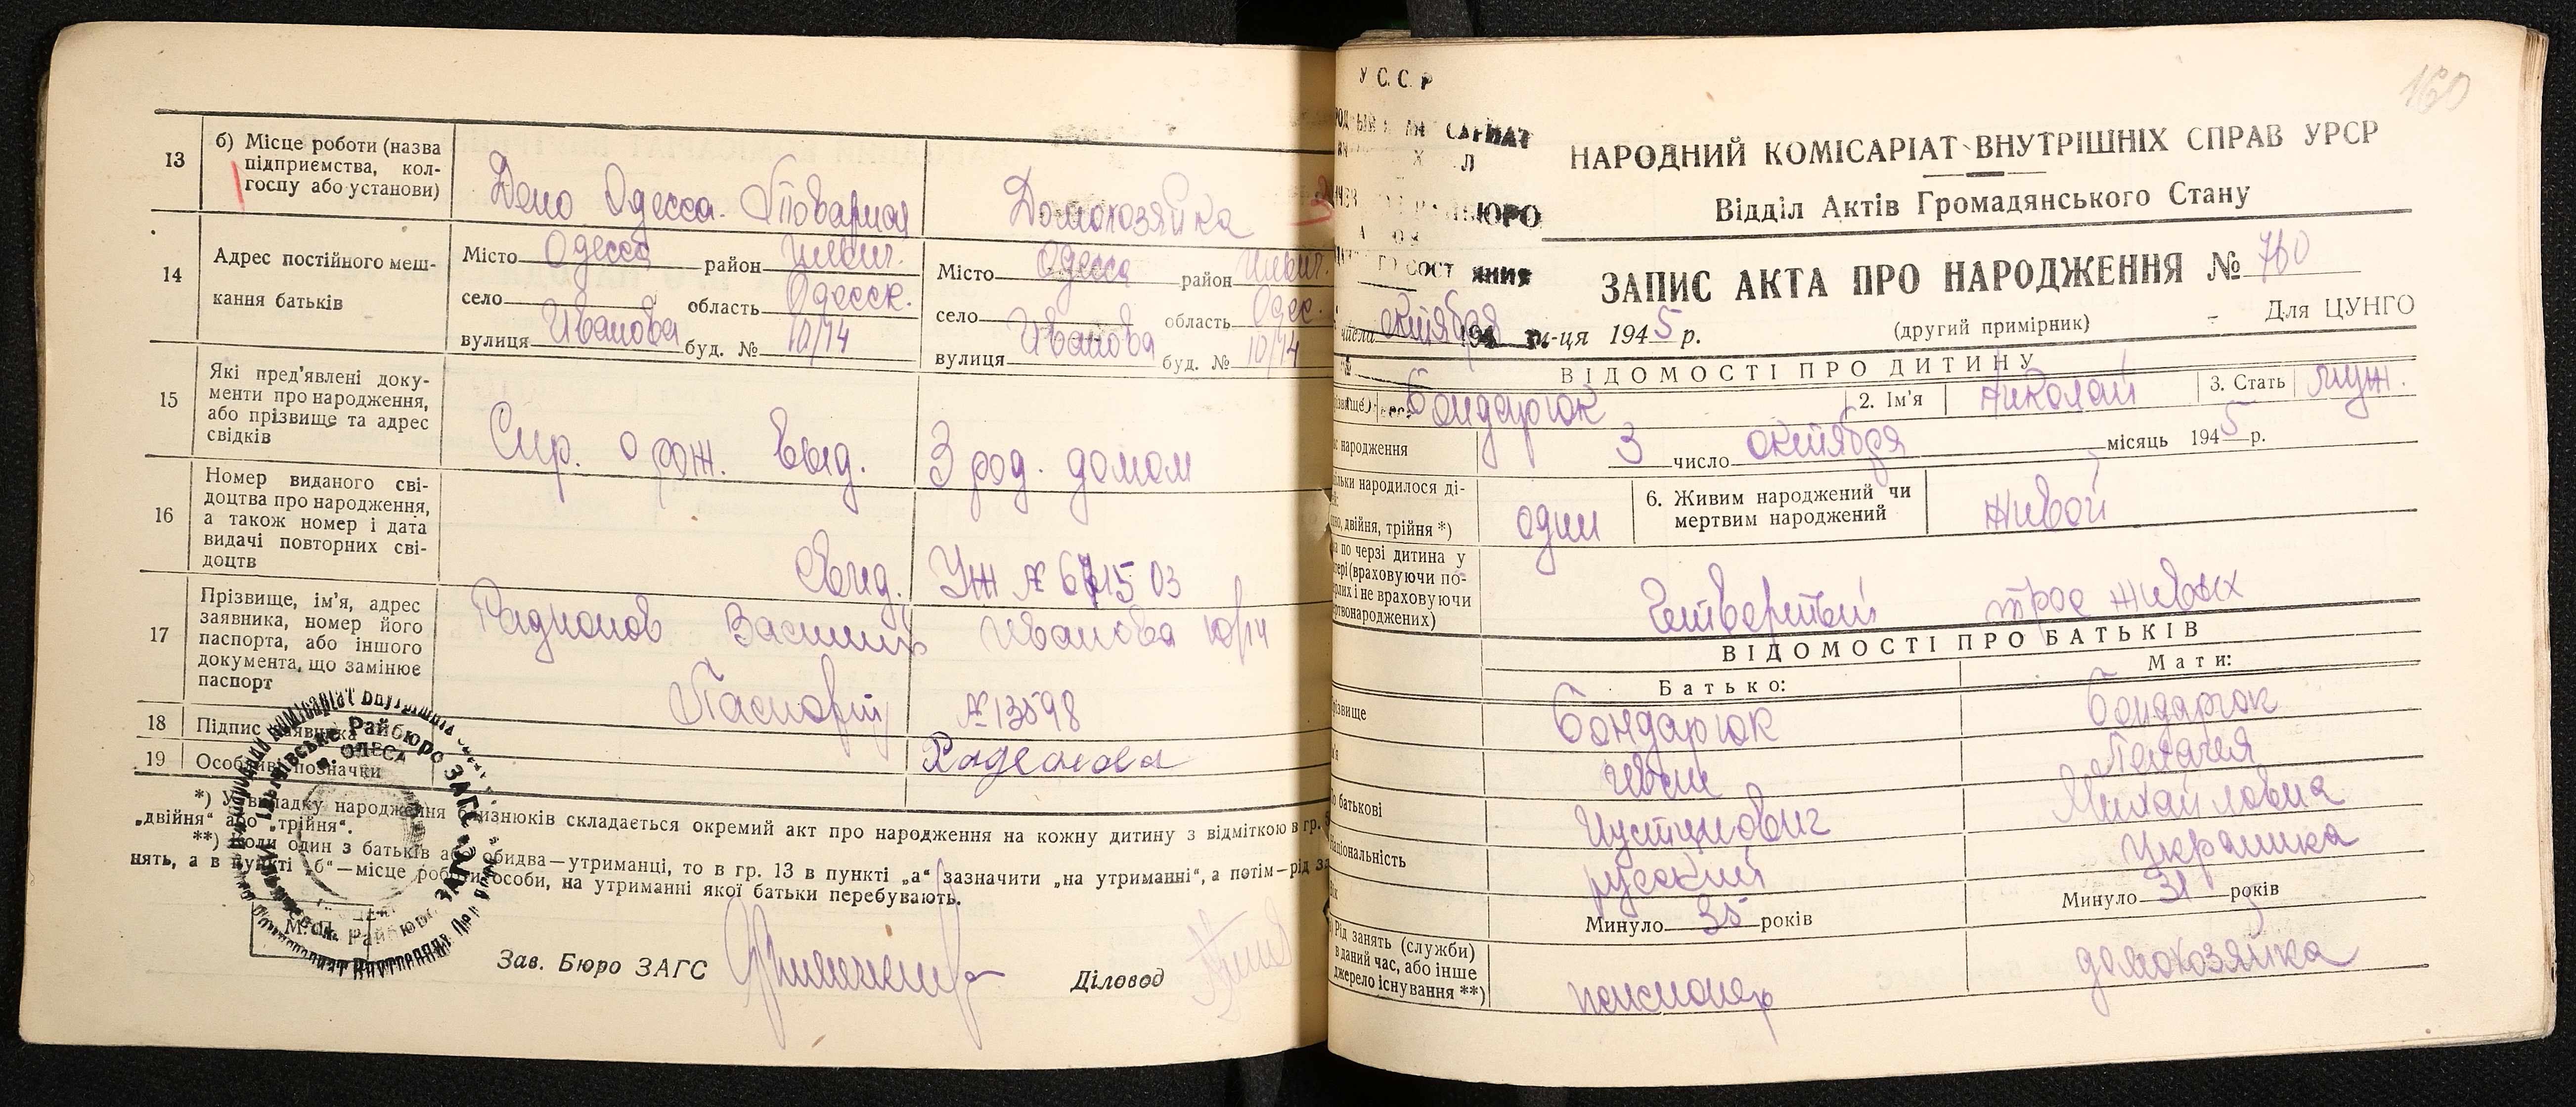 13
б) Місце роботи (назва
підприємства, кол-
госпу або установи)
Депо Одесса. Товарная
Домохозяйка
14
Адрес постійного меш-
кання батьків
Місто Одесса район Ильич.
село область Одесск.
вулиця Иванова буд. № 10/14
Місто Одесса район Ильич.
село область Одес.
вулиця Иванова буд. № 10/14
15
Які пред'явлені доку-
менти про народження,
або прізвище та адрес
свідків
Спр. о рож. выд. 3 род. домом
16
Номер виданого сві-
доцтва про народження,
а також номер і дата
видачі повторних сві-
доцтв
Свид. УЖ №
17
Прізвище, ім'я, адрес
заявника, номер його
паспорта, або іншого
документа, що замінює
паспорт
Радионов Василий Иванова 10/14
Паспорт № 13598
18
Підпис заявника
19
Особливі позначки
*) У випадку народження близнюків складається окремий акт про народження на кожну дитину з відміткою в гр. 5
„двійня“ або „трійня“.
**) Коли один з батьків або обидва—утриманці, то в гр. 13 в пункті „а“ зазначити „на утриманні“, а потім—рід за-
нять, а в пункті „б“—місце роботи особи, на утриманні якої батьки перебувають.
Райбюро ЗАГС
м. ОДЕСА
М. П.
Зав. Бюро ЗАГС
Діловод
160
У С. С. Р
БЮРО
НАРОДНИЙ КОМІСАРІАТ ВНУТРІШНІХ СПРАВ УРСР
Відділ Актів Громадянського Стану
ЗАПИС АКТА ПРО НАРОДЖЕННЯ № 760
числа октября м-ця 1945 р.
(другий примірник)
Для ЦУНГО
ВІДОМОСТІ ПРО ДИТИНУ
Бондарюк
2. Ім'я Николай
3. Стать муж.
народження
3 число октября місяць 1945 р.
народилося ді-
двійня, трійня *)
один
6. Живим народжений чи
мертвим народжений
живой
по черзі дитина у
(враховуючи по-
і не враховуючи
Четвертый трое живых
ВІДОМОСТІ ПРО БАТЬКІВ
Батько:
Мати:
Бондарюк
Бондарюк
Иван
Пелагея
по батькові
Иустинович
Михайловна
національність
русский
Украинка
Минуло 35 років
Минуло 31 років
Рід занять (служби)
в даний час, або інше
джерело існування **)
пенсионер
домохозяйка